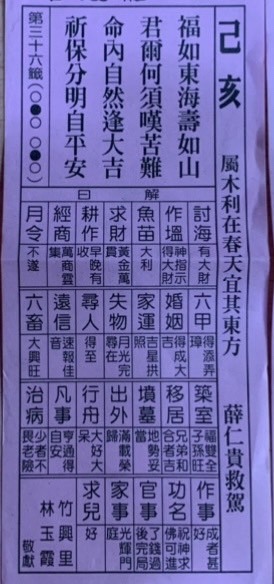 己亥
屬木利在春天宜其東方
薛仁貴救駕
福如東海壽如山
君爾何須嘆苦難
命內自然逢大吉
祈保分明自平安
第三十六籤(○●○ ○●○)
解曰
討海 有大財
作塭 神指示得大財
魚苗 大利
求財 黃金萬貫
耕作 早晚有收
經商 萬商雲集
月令 不遂
六甲 得添弄璋
婚姻 得成大吉
家運 吉星拱照
失物 月光完尋在
尋人 得至
遠信 速報佳音
六畜 大興旺
築室 福雙全子孫旺
移居 兄弟和合者吉
墳墓 地勢妥當
出外 滿載榮歸
行舟 大好大呆
凡事 亨通得自安
治病 少者不畏老險
作事 成者甚好
功名 祝神求佛可進
官事 了錢過後完局
家事 光輝門庭
求兒 好
竹興里
林玉霞
敬獻